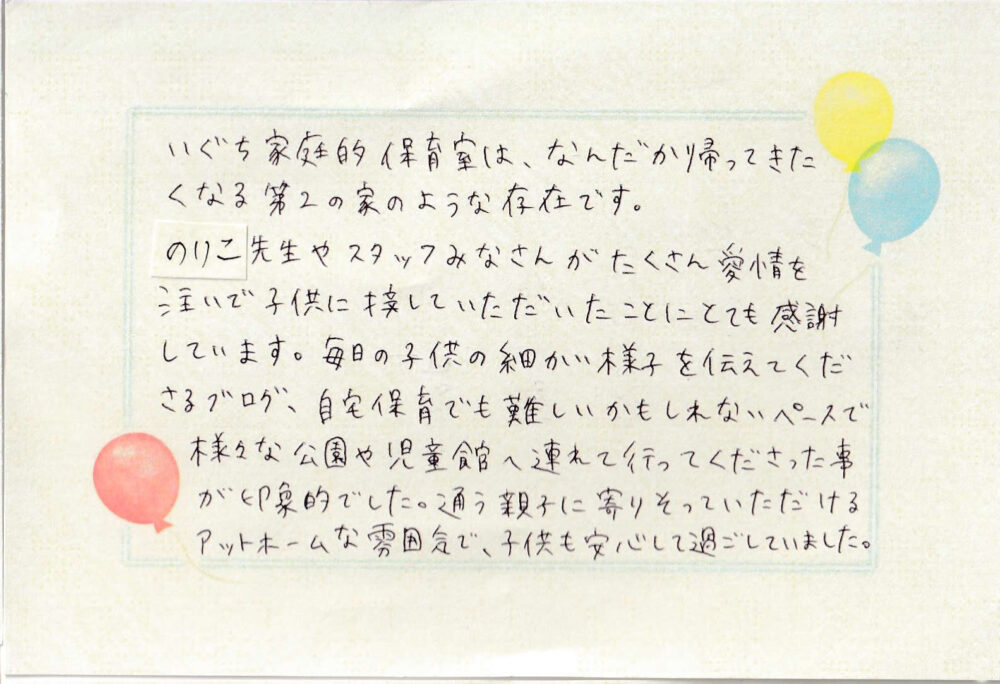 いぐち家庭的保育室は、なんだか帰ってきた
くなる第2の家のような存在です。
のりこ先生やスタッフみなさんがたくさん愛情を
注いで子供に接していただいたことにとても感謝
しています。毎日の子供の細かい様子を伝えてくだ
さるブログ、自宅保育でも難しいかもしれないペースで
様々な公園や児童館へ連れて行ってくださった事
が印象的でした。通う親子に寄りそっていただける
アットホームな雰囲気で、子供も安心して過ごしていました。